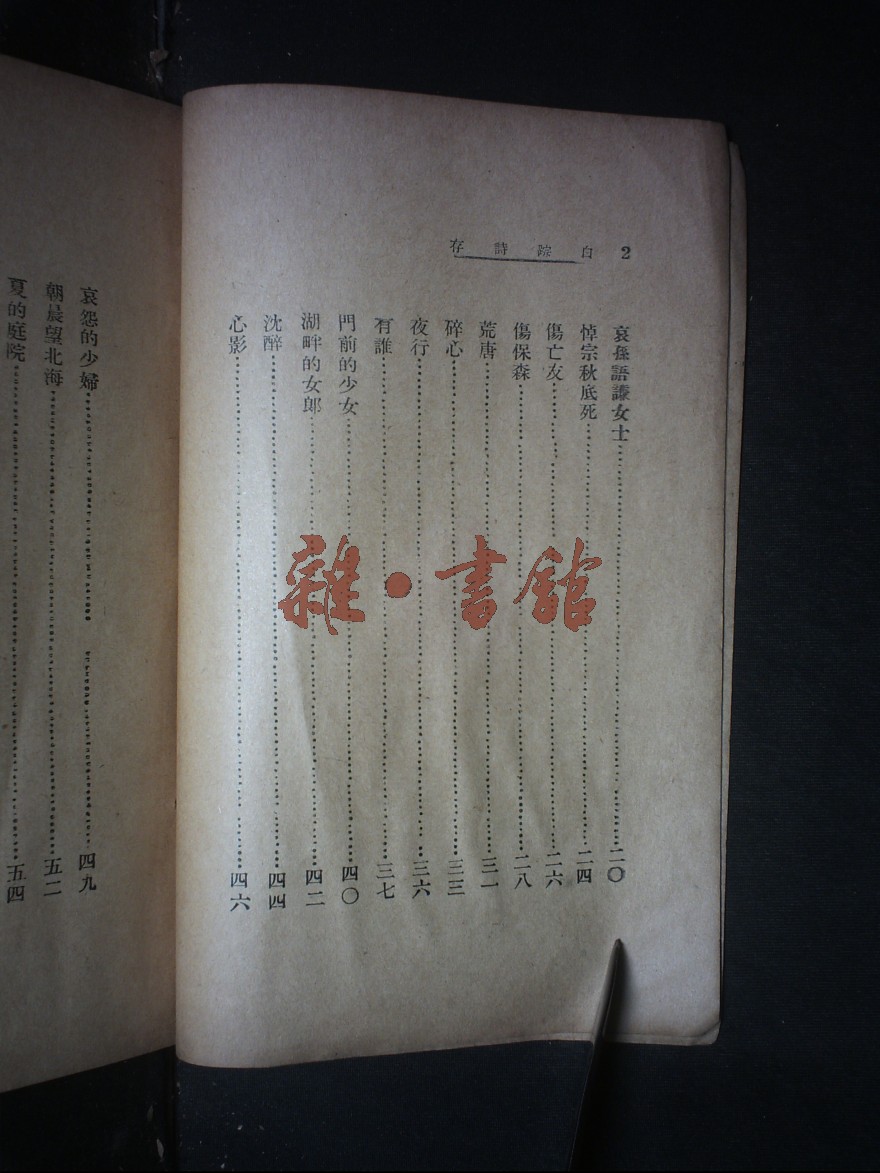 2 白踪詩存
哀孫語謙女士⋯⋯二〇
悼宗秋底死⋯⋯二四
傷亡友⋯⋯二六
傷保森⋯⋯二八
荒唐⋯⋯三一
碎心⋯⋯三三
夜行⋯⋯三六
有誰⋯⋯三七
門前的少女⋯⋯四〇
湖畔的女郎⋯⋯四二
沈醉⋯⋯四四
心影⋯⋯四六
哀怨的少婦⋯⋯四九
朝晨望北海⋯⋯五二
夏的庭院⋯⋯五四
雜·書館